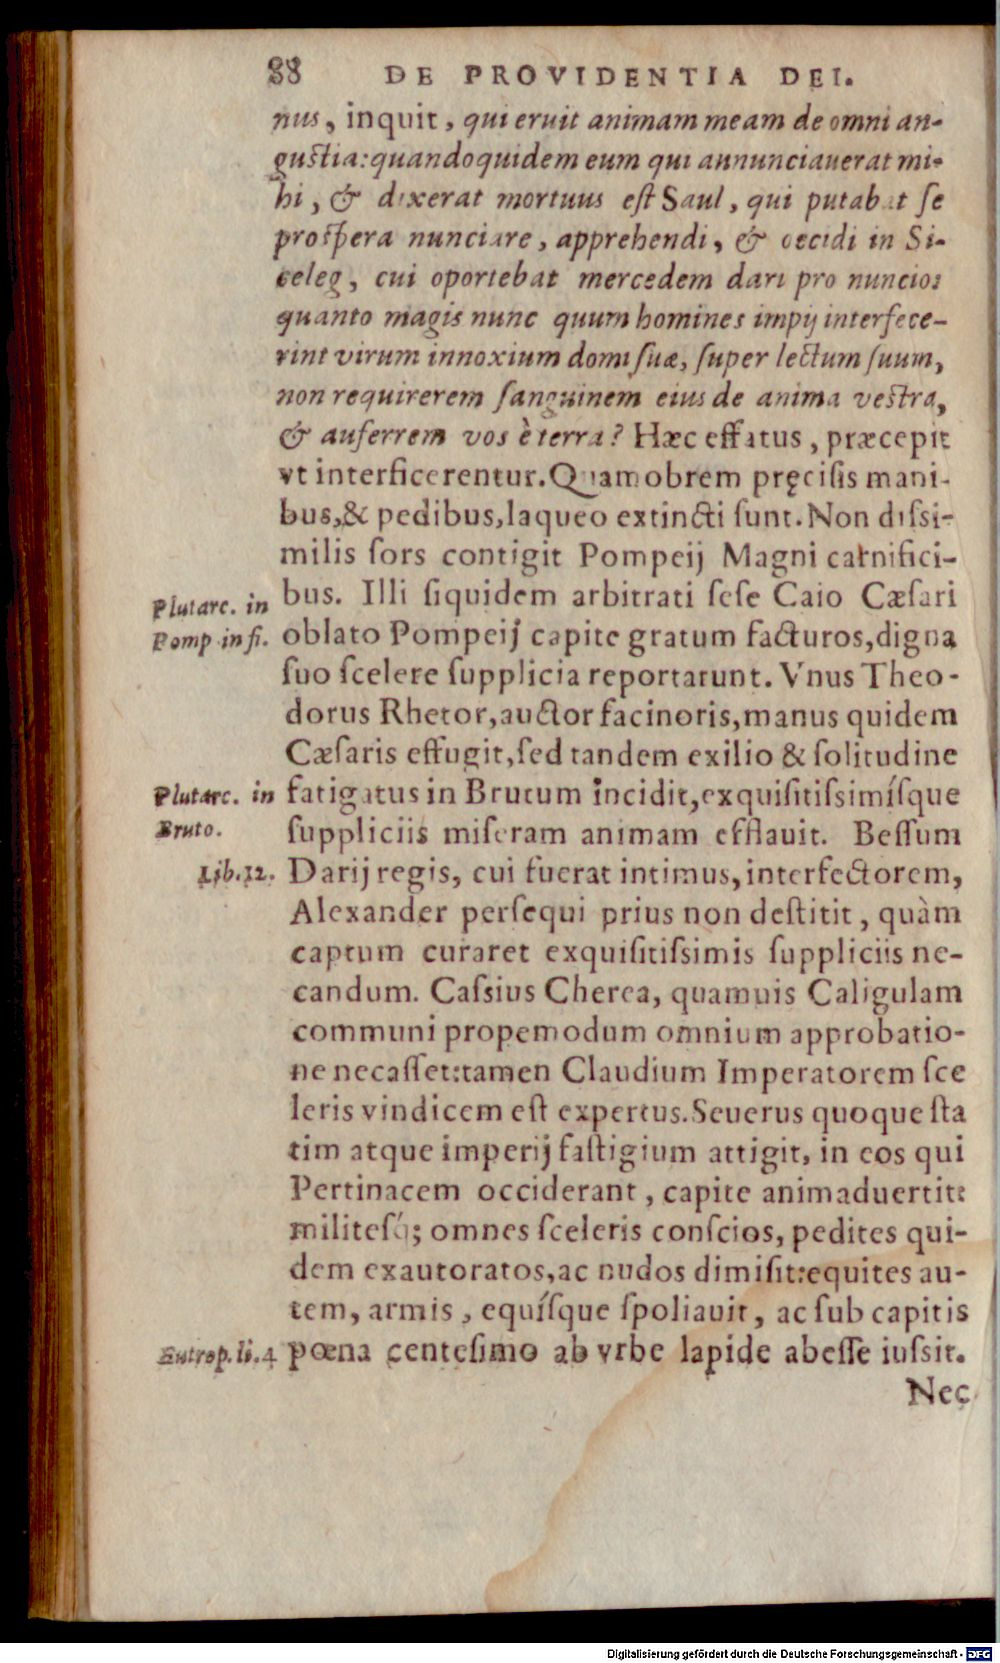 88 DE PROVIDENTIA DEI.
nus, inquit, qui eruit animam meam de omni an-
gustia: quandoquidem eum qui annunciauerat mi-
hi, & dixerat mortuus est Saul, qui putabat se
prospera nunciare, apprehendi, & occidi in Si-
celeg, cui oportebat mercedem dari pro nuncio:
quanto magis nunc quum homines impij interfece-
rint virum innoxium domi suæ, super lectum suum,
non requirerem sanguinem eius de anima vestra,
& auferrem vos è terra? Hæc effatus, præcepit
vt interficerentur. Quamobrem pręcisis mani-
bus, & pedibus, laqueo extincti sunt. Non dissi-
milis sors contigit Pompeij Magni carnifici-
Plutarc. in
bus. Illi siquidem arbitrati sese Caio Cæsari
Pomp in fi.
oblato Pompeij capite gratum facturos, digna
suo scelere supplicia reportarunt. Vnus Theo-
dorus Rhetor, auctor facinoris, manus quidem
Cæsaris effugit, sed tandem exilio & solitudine
Plutarc. in
fatigatus in Brutum incidit, exquisitissimísque
Bruto.
suppliciis miseram animam efflauit. Bessum
Lib. 12.
Darij regis, cui fuerat intimus, interfectorem,
Alexander persequi prius non destitit, quàm
captum curaret exquisitissimis suppliciis ne-
candum. Cassius Cherea, quamuis Caligulam
communi propemodum omnium approbatio-
ne necasset: tamen Claudium Imperatorem sce
leris vindicem est expertus. Seuerus quoque sta
tim atque imperij fastigium attigit, in eos qui
Pertinacem occiderant, capite animaduertit:
militesq́; omnes sceleris conscios, pedites qui-
dem exautoratos, ac nudos dimisit: equites au-
tem, armis, equísque spoliauit, ac sub capitis
Eutrop. li. 4
pœna centesimo ab vrbe lapide abesse iussit.
Nec
Digitalisierung gefördert durch die Deutsche Forschungsgemeinschaft - DFG